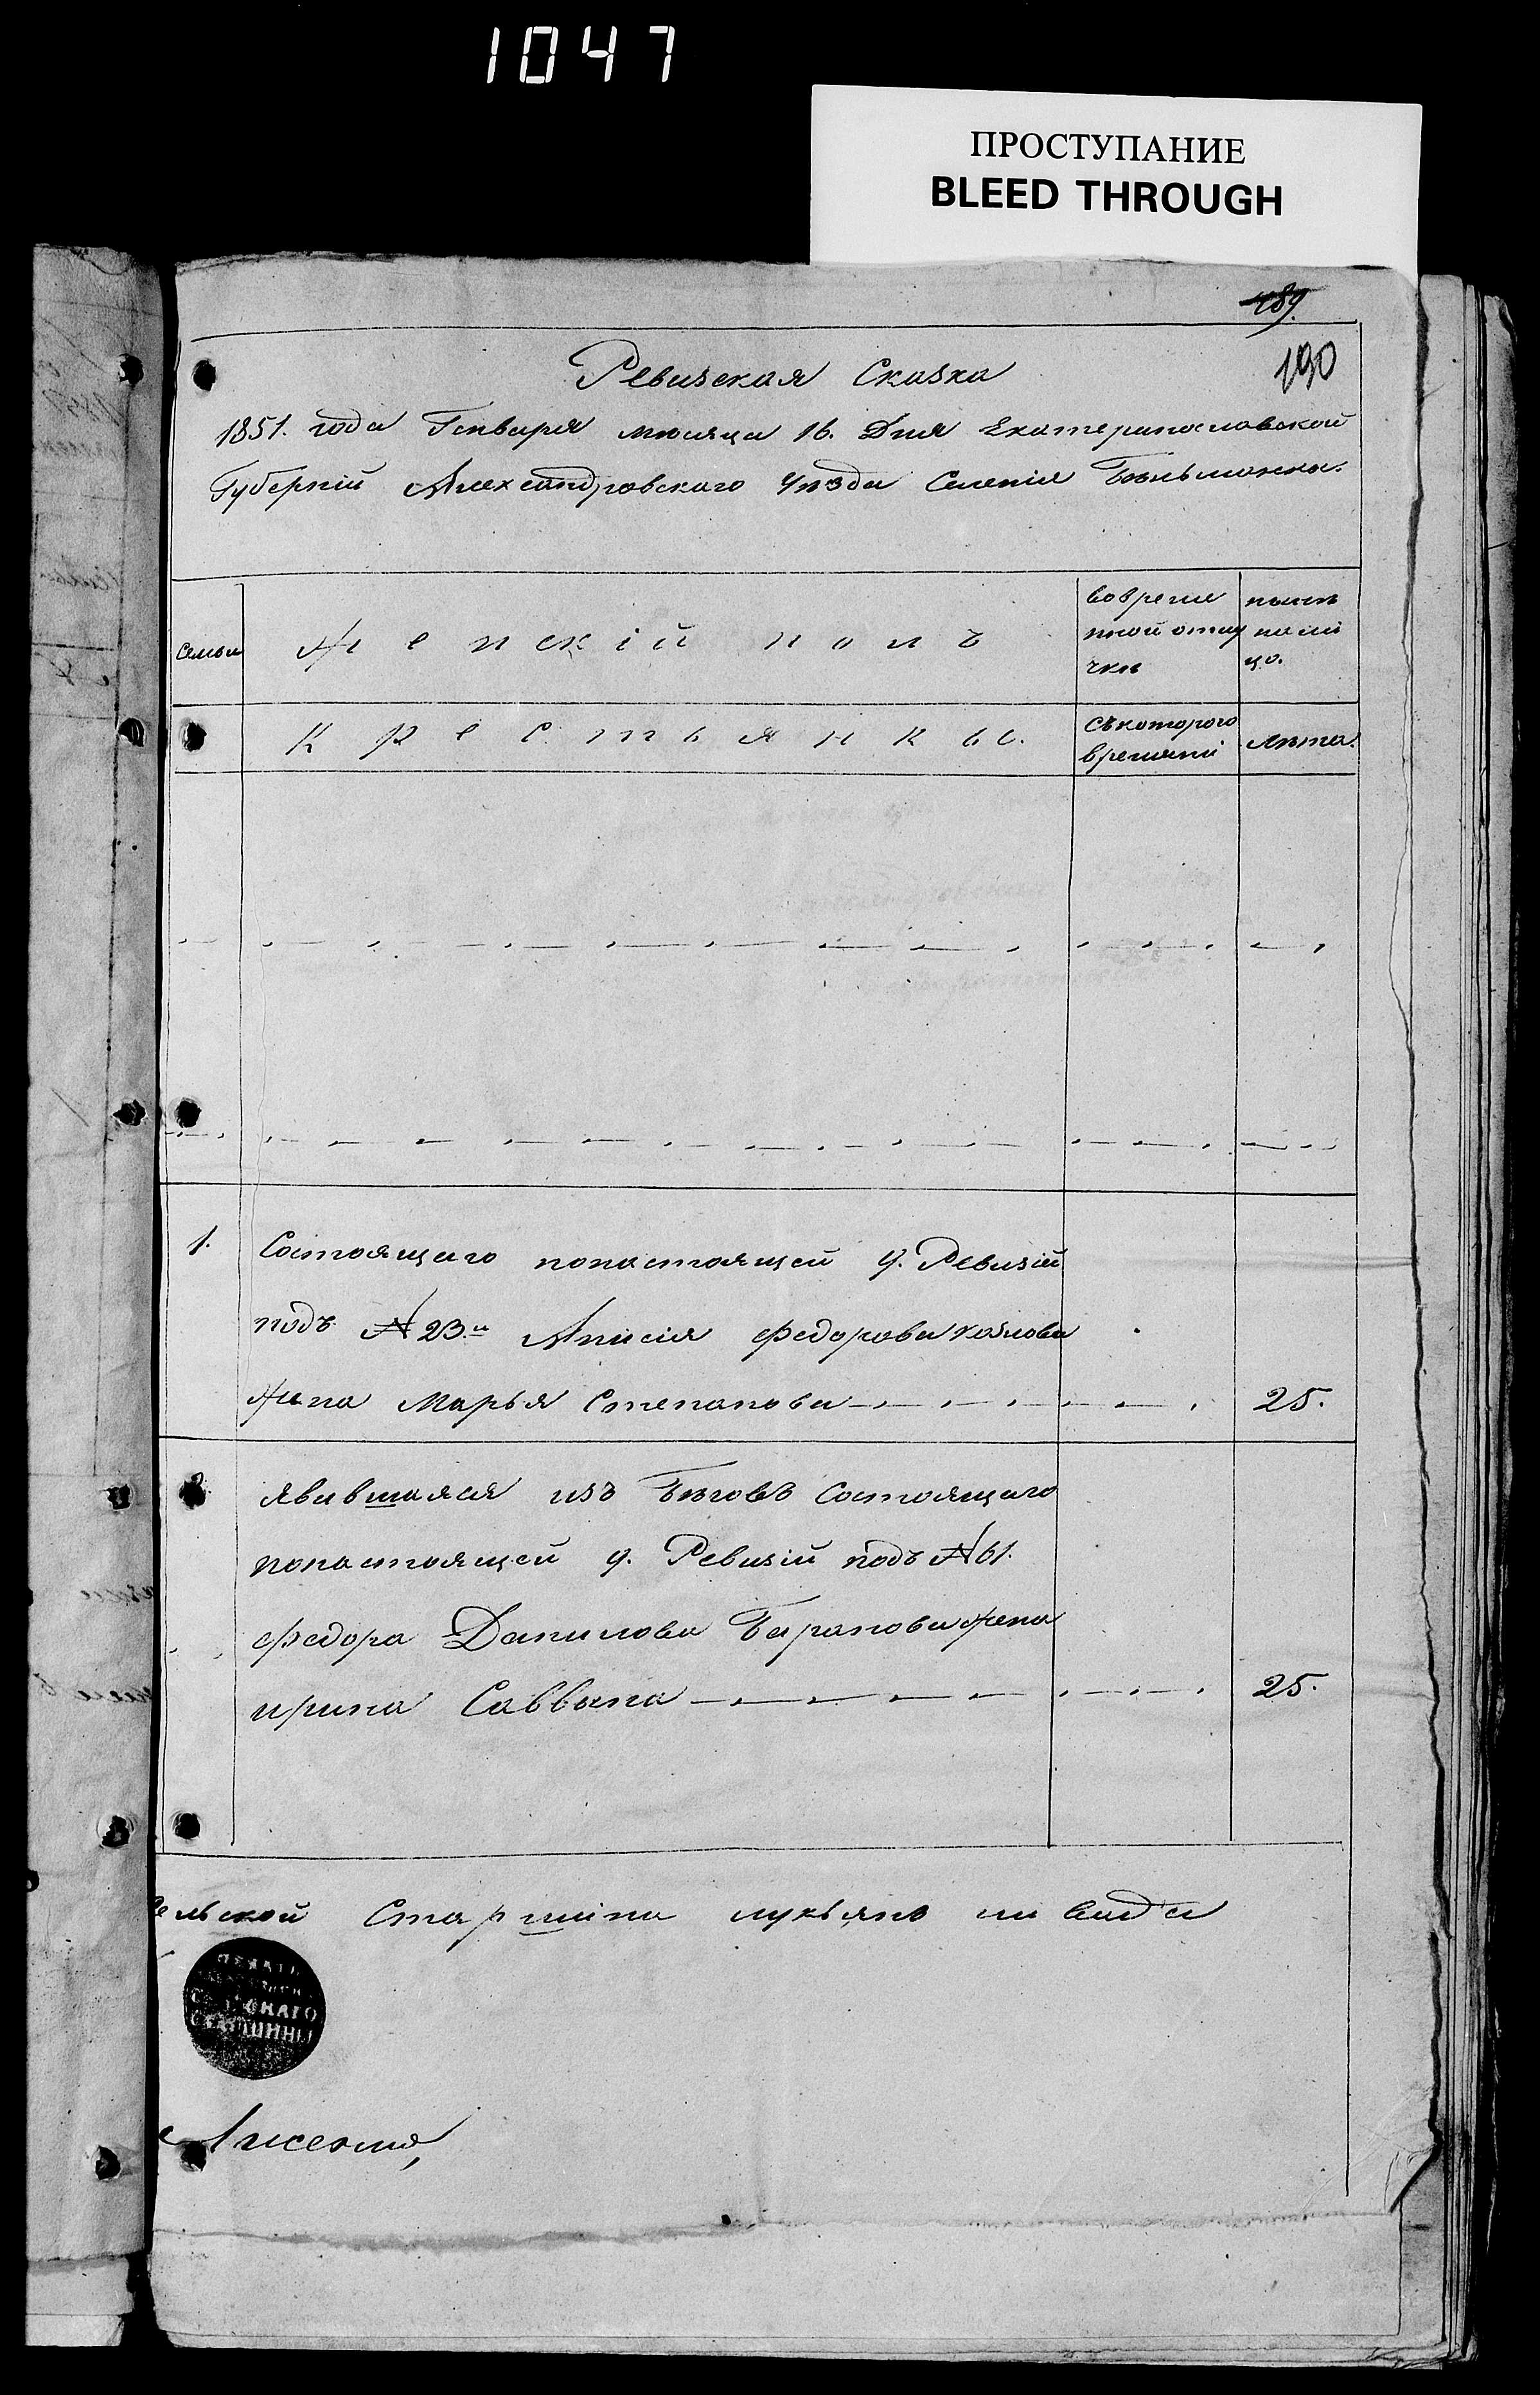 1047
ПРОСТУПАНИЕ
BLEED THROUGH
489.
190
Ревизская Сказка
1851. года Генваря мѣсяца 16. Дня Екатеринославской
Губерній Александровскаго Уѣзда Селенія Бѣльманка.
семьи
Женскій полъ
во време
нной отлу
чкѣ
нынѣ
на ли
цо.
Крестьянкы.
съ котораго
времяни
лѣта.
1.
Состоящаго понастоящей 9. Ревизій
подъ №23.й Анисія Федорова Козлова
жина Марья Степанова
25.
явившаяся изъ Бѣговъ состоящаго
понастоящей 9. Ревизій подъ №61.
Федора Данилова Баранова жена
ирина Саввина
25.
ельской Старшина лукьяно
ПЕЧАТЬ
СЕЛЬСКАГО
СТАРШИНЫ